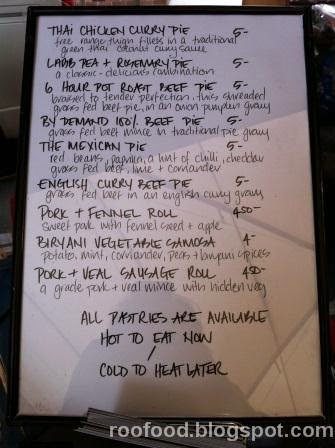 THAI CHICKEN CURRY PIE 5-
free range thigh fillets in a traditional
green thai coconut curry sauce
LAMB PEA + ROSEMARY PIE 5-
a classic - delicious combination
6 HOUR POT ROAST BEEF PIE 5-
braised to tender perfection, this shredded
grass fed beef pie, in an onion pumpkin gravy
BY DEMAND 100% BEEF PIE 5-
grass fed beef mince in traditional pie gravy
THE MEXICAN PIE 5-
red beans, paprika, a hint of chilli, cheddar
grass fed beef, lime + corriander
ENGLISH CURRY BEEF PIE 5-
grass fed beef in an english curry gravy
PORK + FENNEL ROLL 450-
sweet pork with fennel seed + apple
BIRYANI VEGETABLE SAMOSA 4-
potato, mint, corriander, peas + biryani spices
PORK + VEAL SAUSAGE ROLL 450-
a grade pork + veal mince with hidden veg
ALL PASTRIES ARE AVAILABLE
HOT TO EAT NOW
/
COLD TO HEAT LATER
roofood.blogspot.com